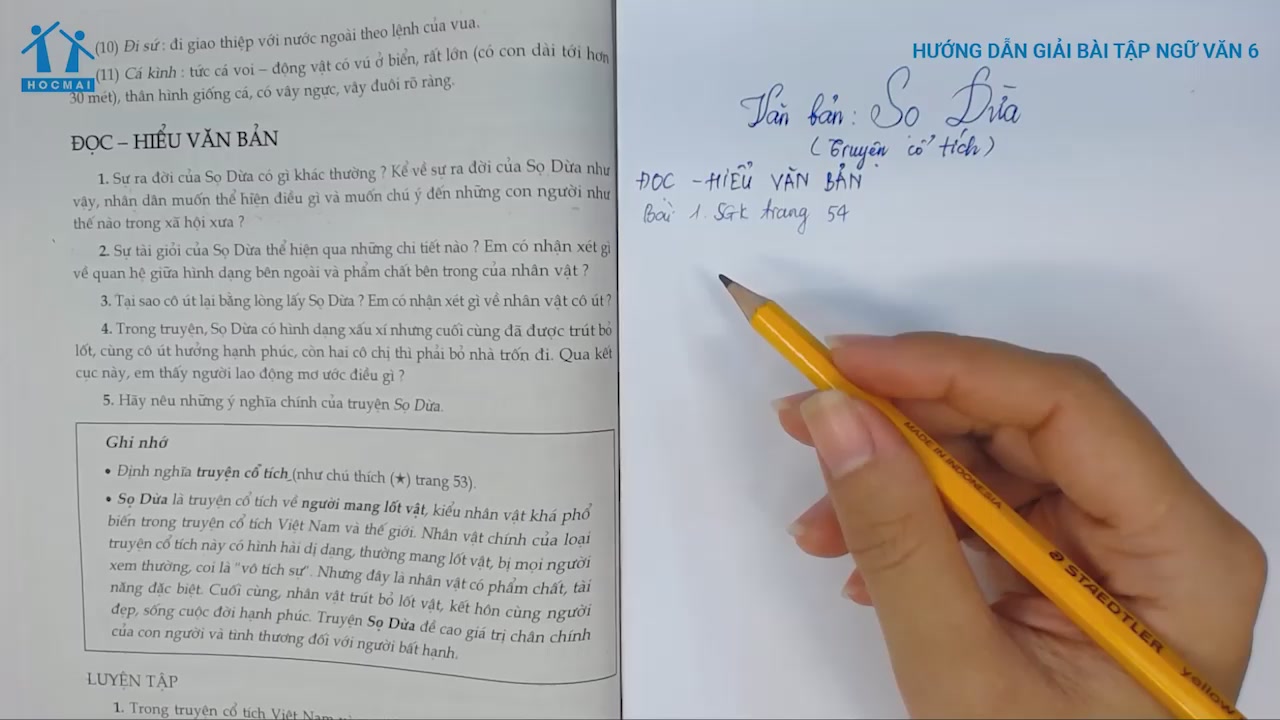 (10) Đi sứ : đi giao thiệp với nước ngoài theo lệnh của vua.
(11) Cá kình : tức cá voi – động vật có vú ở biển, rất lớn (có con dài tới hơn
30 mét), thân hình giống cá, có vây ngực, vây đuôi rõ ràng.
HOCMAI
ĐỌC – HIỂU VĂN BẢN
1. Sự ra đời của Sọ Dừa có gì khác thường ? Kể về sự ra đời của Sọ Dừa như
vậy, nhân dân muốn thể hiện điều gì và muốn chú ý đến những con người như
thế nào trong xã hội xưa ?
2. Sự tài giỏi của Sọ Dừa thể hiện qua những chi tiết nào ? Em có nhận xét gì
về quan hệ giữa hình dạng bên ngoài và phẩm chất bên trong của nhân vật ?
3. Tại sao cô út lại bằng lòng lấy Sọ Dừa ? Em có nhận xét gì về nhân vật cô út?
4. Trong truyện, Sọ Dừa có hình dạng xấu xí nhưng cuối cùng đã được trút bỏ
lốt, cùng cô út hưởng hạnh phúc, còn hai cô chị thì phải bỏ nhà trốn đi. Qua kết
cục này, em thấy người lao động mơ ước điều gì ?
5. Hãy nêu những ý nghĩa chính của truyện Sọ Dừa.
Ghi nhớ
• Định nghĩa truyện cổ tích (như chú thích (★) trang 53).
• Sọ Dừa là truyện cổ tích về người mang lốt vật, kiểu nhân vật khá phổ
biến trong truyện cổ tích Việt Nam và thế giới. Nhân vật chính của loại
truyện cổ tích này có hình hài dị dạng, thường mang lốt vật, bị mọi người
xem thường, coi là "vô tích sự". Nhưng đây là nhân vật có phẩm chất, tài
năng đặc biệt. Cuối cùng, nhân vật trút bỏ lốt vật, kết hôn cùng người
đẹp, sống cuộc đời hạnh phúc. Truyện Sọ Dừa đề cao giá trị chân chính
của con người và tình thương đối với người bất hạnh.
LUYỆN TẬP
1. Trong truyện cổ tích Việt Nam
HƯỚNG DẪN GIẢI BÀI TẬP NGỮ VĂN 6
Văn bản: Sọ Dừa
(Truyện cổ tích)
ĐỌC - HIỂU VĂN BẢN
Bài 1. SGK trang 54
MADE IN INDONESIA
STAEDTLER yellow